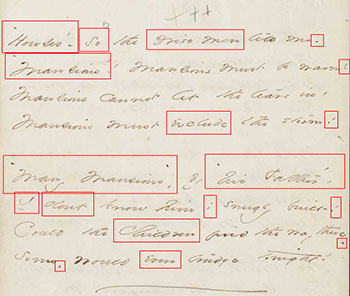 "Houses" - so the Wise Men tell me -
"Mansions"! Mansions must be warm!
Mansions cannot let the tears in -
Mansions must exclude the storm!
"Many Mansions", by "his Father",
I dont know him; snugly built!
Could the Children find the way there -
Some, would even trudge tonight!